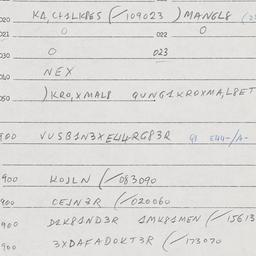 020 KA,CH1LK8ES (/109023 ) MANGL8
021 0 022 0
030 0 023
040 NEX
050 ) KRO,XMAL8 QUNG1KROXMA,L8ET
800 VUSB1N3XE44RG83R 91 E44-/A-
900 KOJLN (/083090
900 OEJN2R (/020060
900 D2K81ND3R 1MK81MEN (/15613
900 3XDAFADOKT3R (/173070